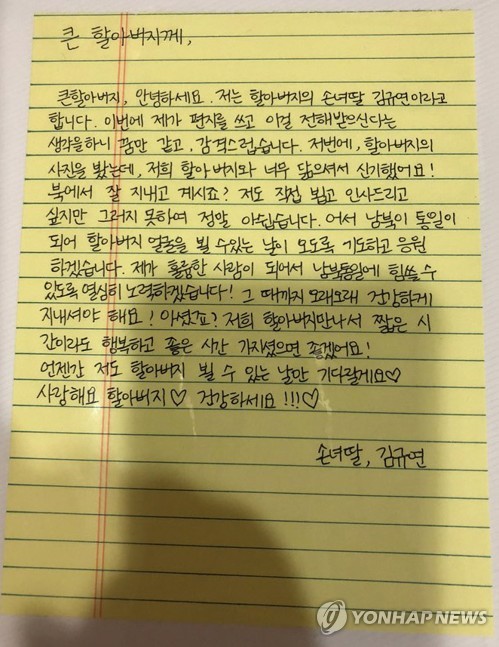 큰 할아버지께,
큰할아버지, 안녕하세요. 저는 할아버지의 손녀딸 김규연이라고
합니다. 이번에 제가 편지를 쓰고 이걸 전해받으신다는
생각을하니 꿈만 같고, 감격스럽습니다. 저번에, 할아버지의
사진을 봤는데, 저희 할아버지와 너무 닮으셔서 신기했어요!
북에서 잘 지내고 계시죠? 저도 직접 뵙고 인사드리고
싶지만 그러지 못하여 정말 아쉽습니다. 어서 남북이 통일이
되어 할아버지 얼굴을 뵐 수있는 날이 오도록 기도하고 응원
하겠습니다. 제가 훌륭한 사람이 되어서 남북통일에 힘쓸 수
있도록 열심히 노력하겠습니다! 그 때까지 오래오래 건강하게
지내셔야 해요! 아셨죠? 저희 할아버지만나서 짧은 시
간이라도 행복하고 좋은 시간 가지셨으면 좋겠어요!
언젠간 저도 할아버지 뵐 수 있는 날만 기다릴게요♡
사랑해요 할아버지♡ 건강하세요!!!♡
손녀딸, 김규연
YONHAP NEWS